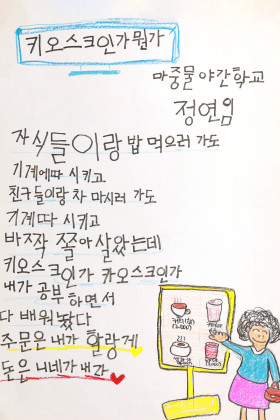 키오스크인가뭔가
마중물 야간학교
정연임
자식들이랑 밥 먹으러 가도
기계에따 시키고
친구들이랑 차 마시러 가도
기계따 시키고
바짝 쫄아 살았는데
키오스크인가 카오스크인가
내가 공부하면서
다 배워놨다
주문은 내가 할랑게
돈은 니네가 내라